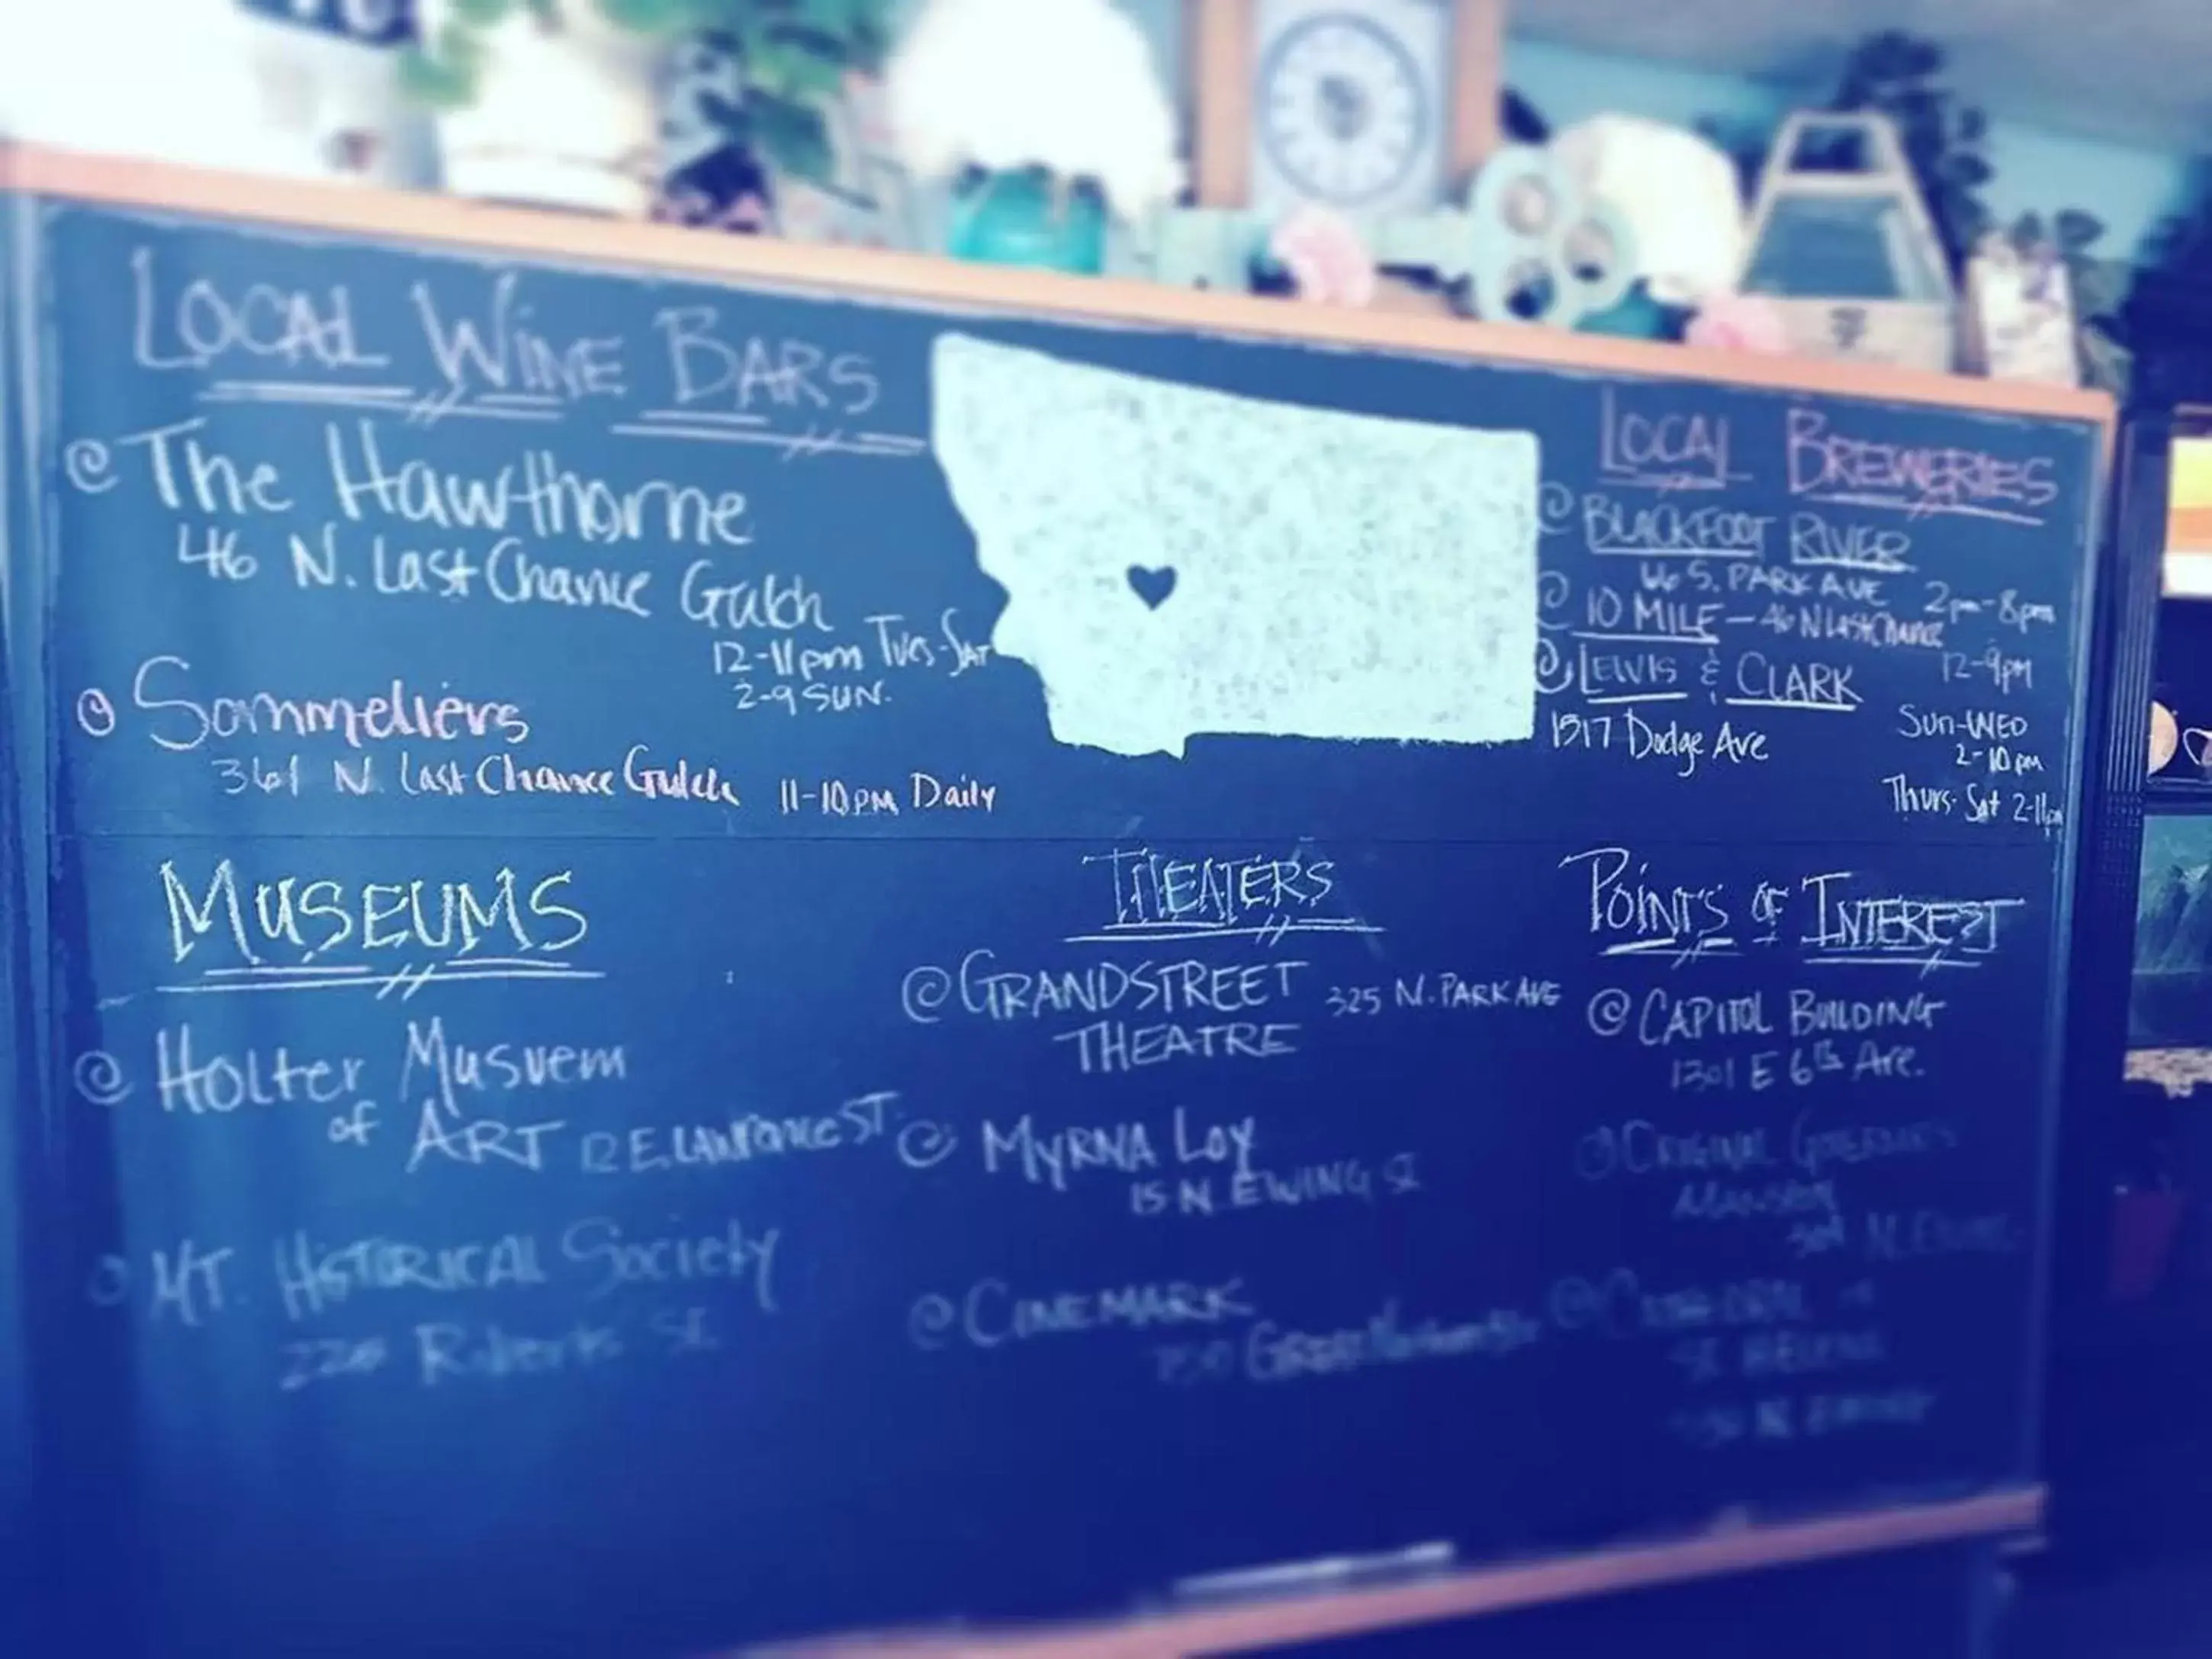 Local Wine Bars
The Hawthorne
46 N. Last Chance Gulch
12-11pm Tues-Sat
2-9 Sun.
Sommeliers
361 N. Last Chance Gulch 11-10pm Daily
Local Breweries
Blackfoot River
66 S. Park Ave 2pm-8pm
10 Mile - 46 N Last Chance
12-9pm
Lewis & Clark
1517 Dodge Ave
Sun-Wed
2-10pm
Thurs-Sat 2-11pm
Museums
Holter Museum
of Art 12 E. Lawrence St.
MT. Historical Society
Roberts St.
Theaters
Grandstreet 325 N. Park Ave
Theatre
Myrna Loy
15 N. Ewing St
Cinemark
Great Northern
Points of Interest
Capitol Building
1301 E 6th Ave.
Original Governors
Mansion
304 N. Ewing
Cathedral of
St Helena
N. Ewing